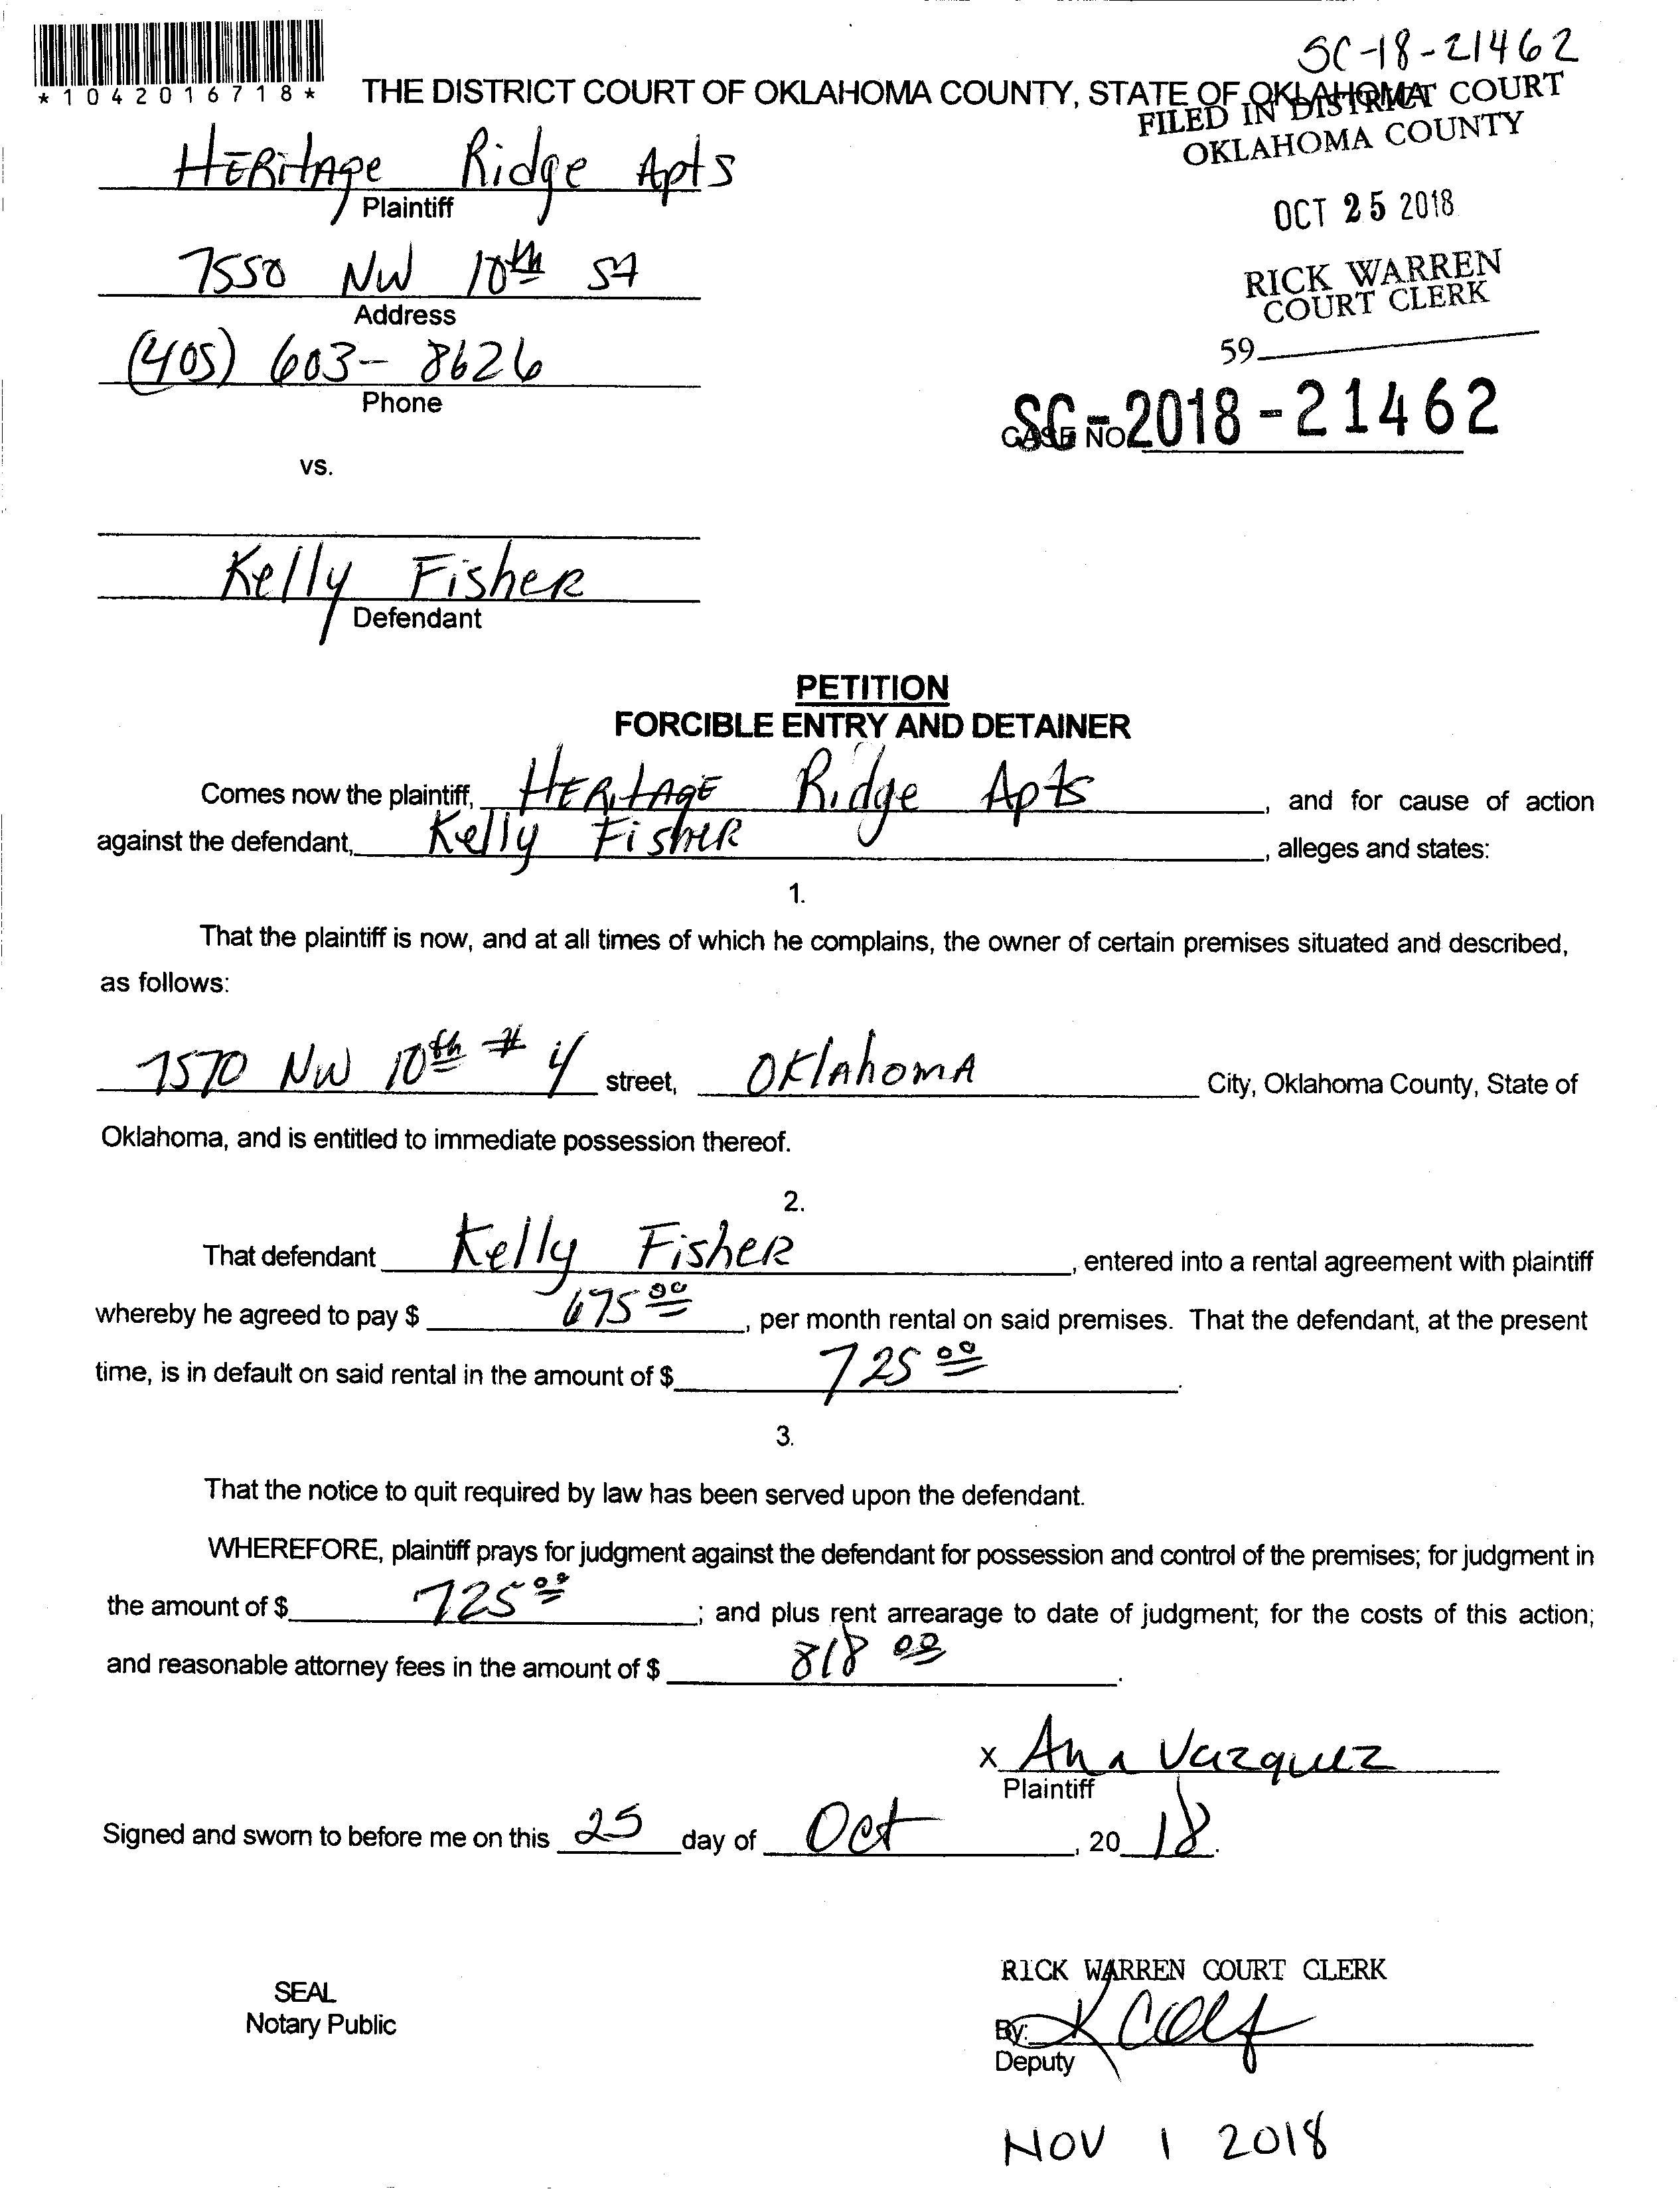 SC-18-21462
*1042016718*
THE DISTRICT COURT OF OKLAHOMA COUNTY, STATE OF OKLAHOMA
FILED IN DISTRICT COURT
OKLAHOMA COUNTY
HERitAge Ridge Apts
Plaintiff
OCT 25 2018
7550 NW 10th St
Address
RICK WARREN
COURT CLERK
(405) 603-8626
Phone
59
CASE NO.
SC-2018-21462
vs.
Kelly FisheR
Defendant
PETITION
FORCIBLE ENTRY AND DETAINER
Comes now the plaintiff, HERitAGE Ridge Apts, and for cause of action
against the defendant, Kelly FisheR, alleges and states:
1.
That the plaintiff is now, and at all times of which he complains, the owner of certain premises situated and described,
as follows:
7570 NW 10th # 4 street, OKlAhomA City, Oklahoma County, State of
Oklahoma, and is entitled to immediate possession thereof.
2.
That defendant Kelly FisheR, entered into a rental agreement with plaintiff
whereby he agreed to pay $ 675 00, per month rental on said premises. That the defendant, at the present
time, is in default on said rental in the amount of $ 725 00.
3.
That the notice to quit required by law has been served upon the defendant.
WHEREFORE, plaintiff prays for judgment against the defendant for possession and control of the premises; for judgment in
the amount of $ 725 00; and plus rent arrearage to date of judgment; for the costs of this action;
and reasonable attorney fees in the amount of $ 818 00.
x Ana Vazquez
Plaintiff
Signed and sworn to before me on this 25 day of Oct, 2018.
RICK WARREN COURT CLERK
SEAL
Notary Public
By:
Deputy
NOV 1 2018